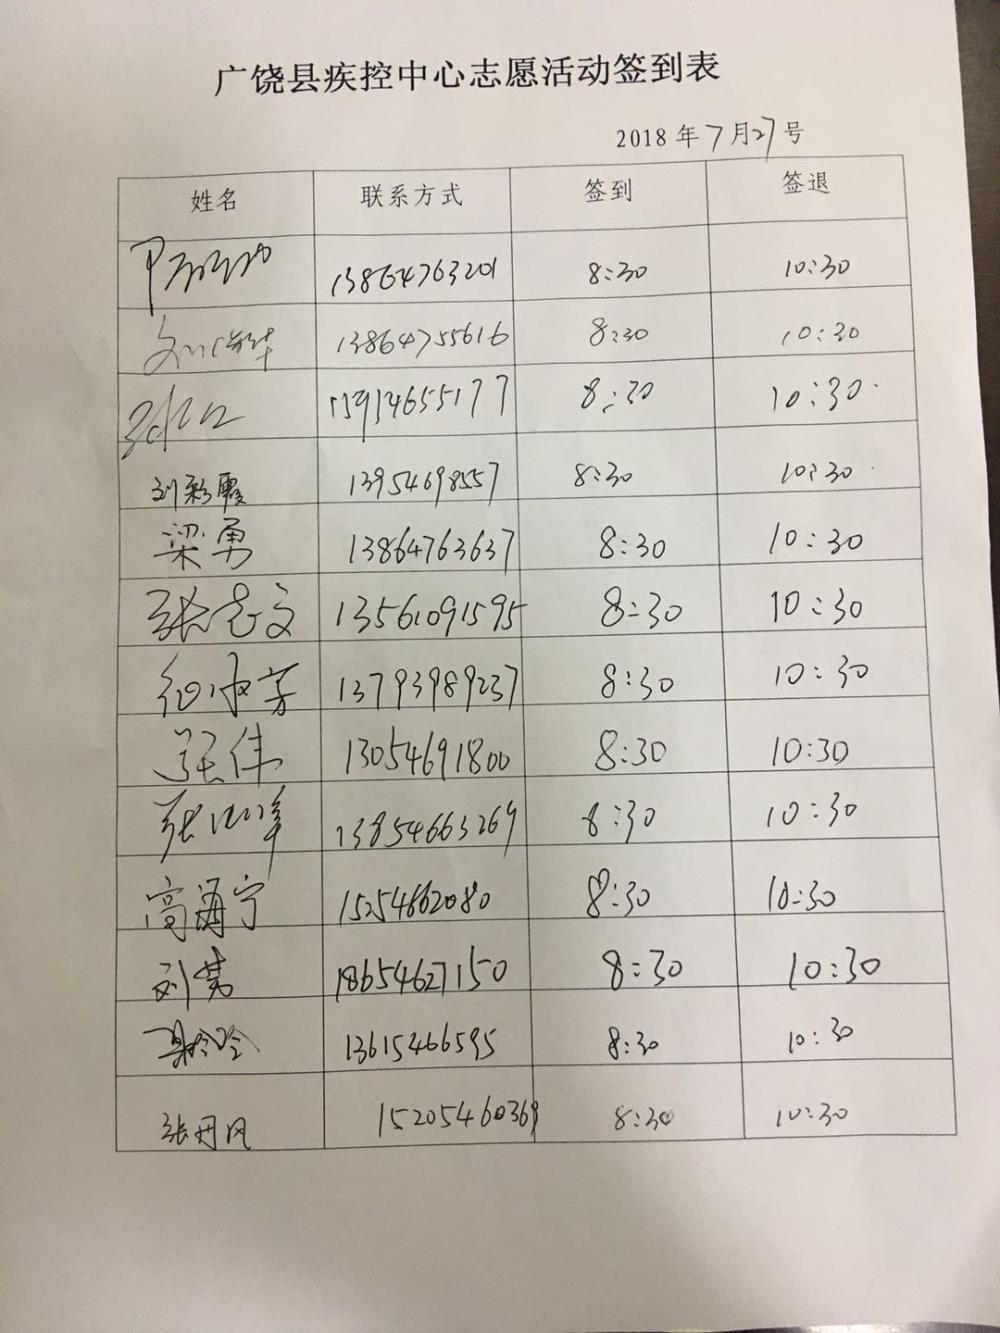 广饶县疾控中心志愿活动签到表
2018年7月27号
姓名 联系方式 签到 签退
13864763201 8:30 10:30
13864755616 8:30 10:30
8:30 10:30
刘彩霞 13954698557 8:30 10:30
梁勇 13864763637 8:30 10:30
张志文 13561091595 8:30 10:30
13793989237 8:30 10:30
张伟 13054691800 8:30 10:30
13854663269 8:30 10:30
高海宁 15254662080 8:30 10:30
18654627150 8:30 10:30
13615466595 8:30 10:30
张丹凤 15205460369 8:30 10:30